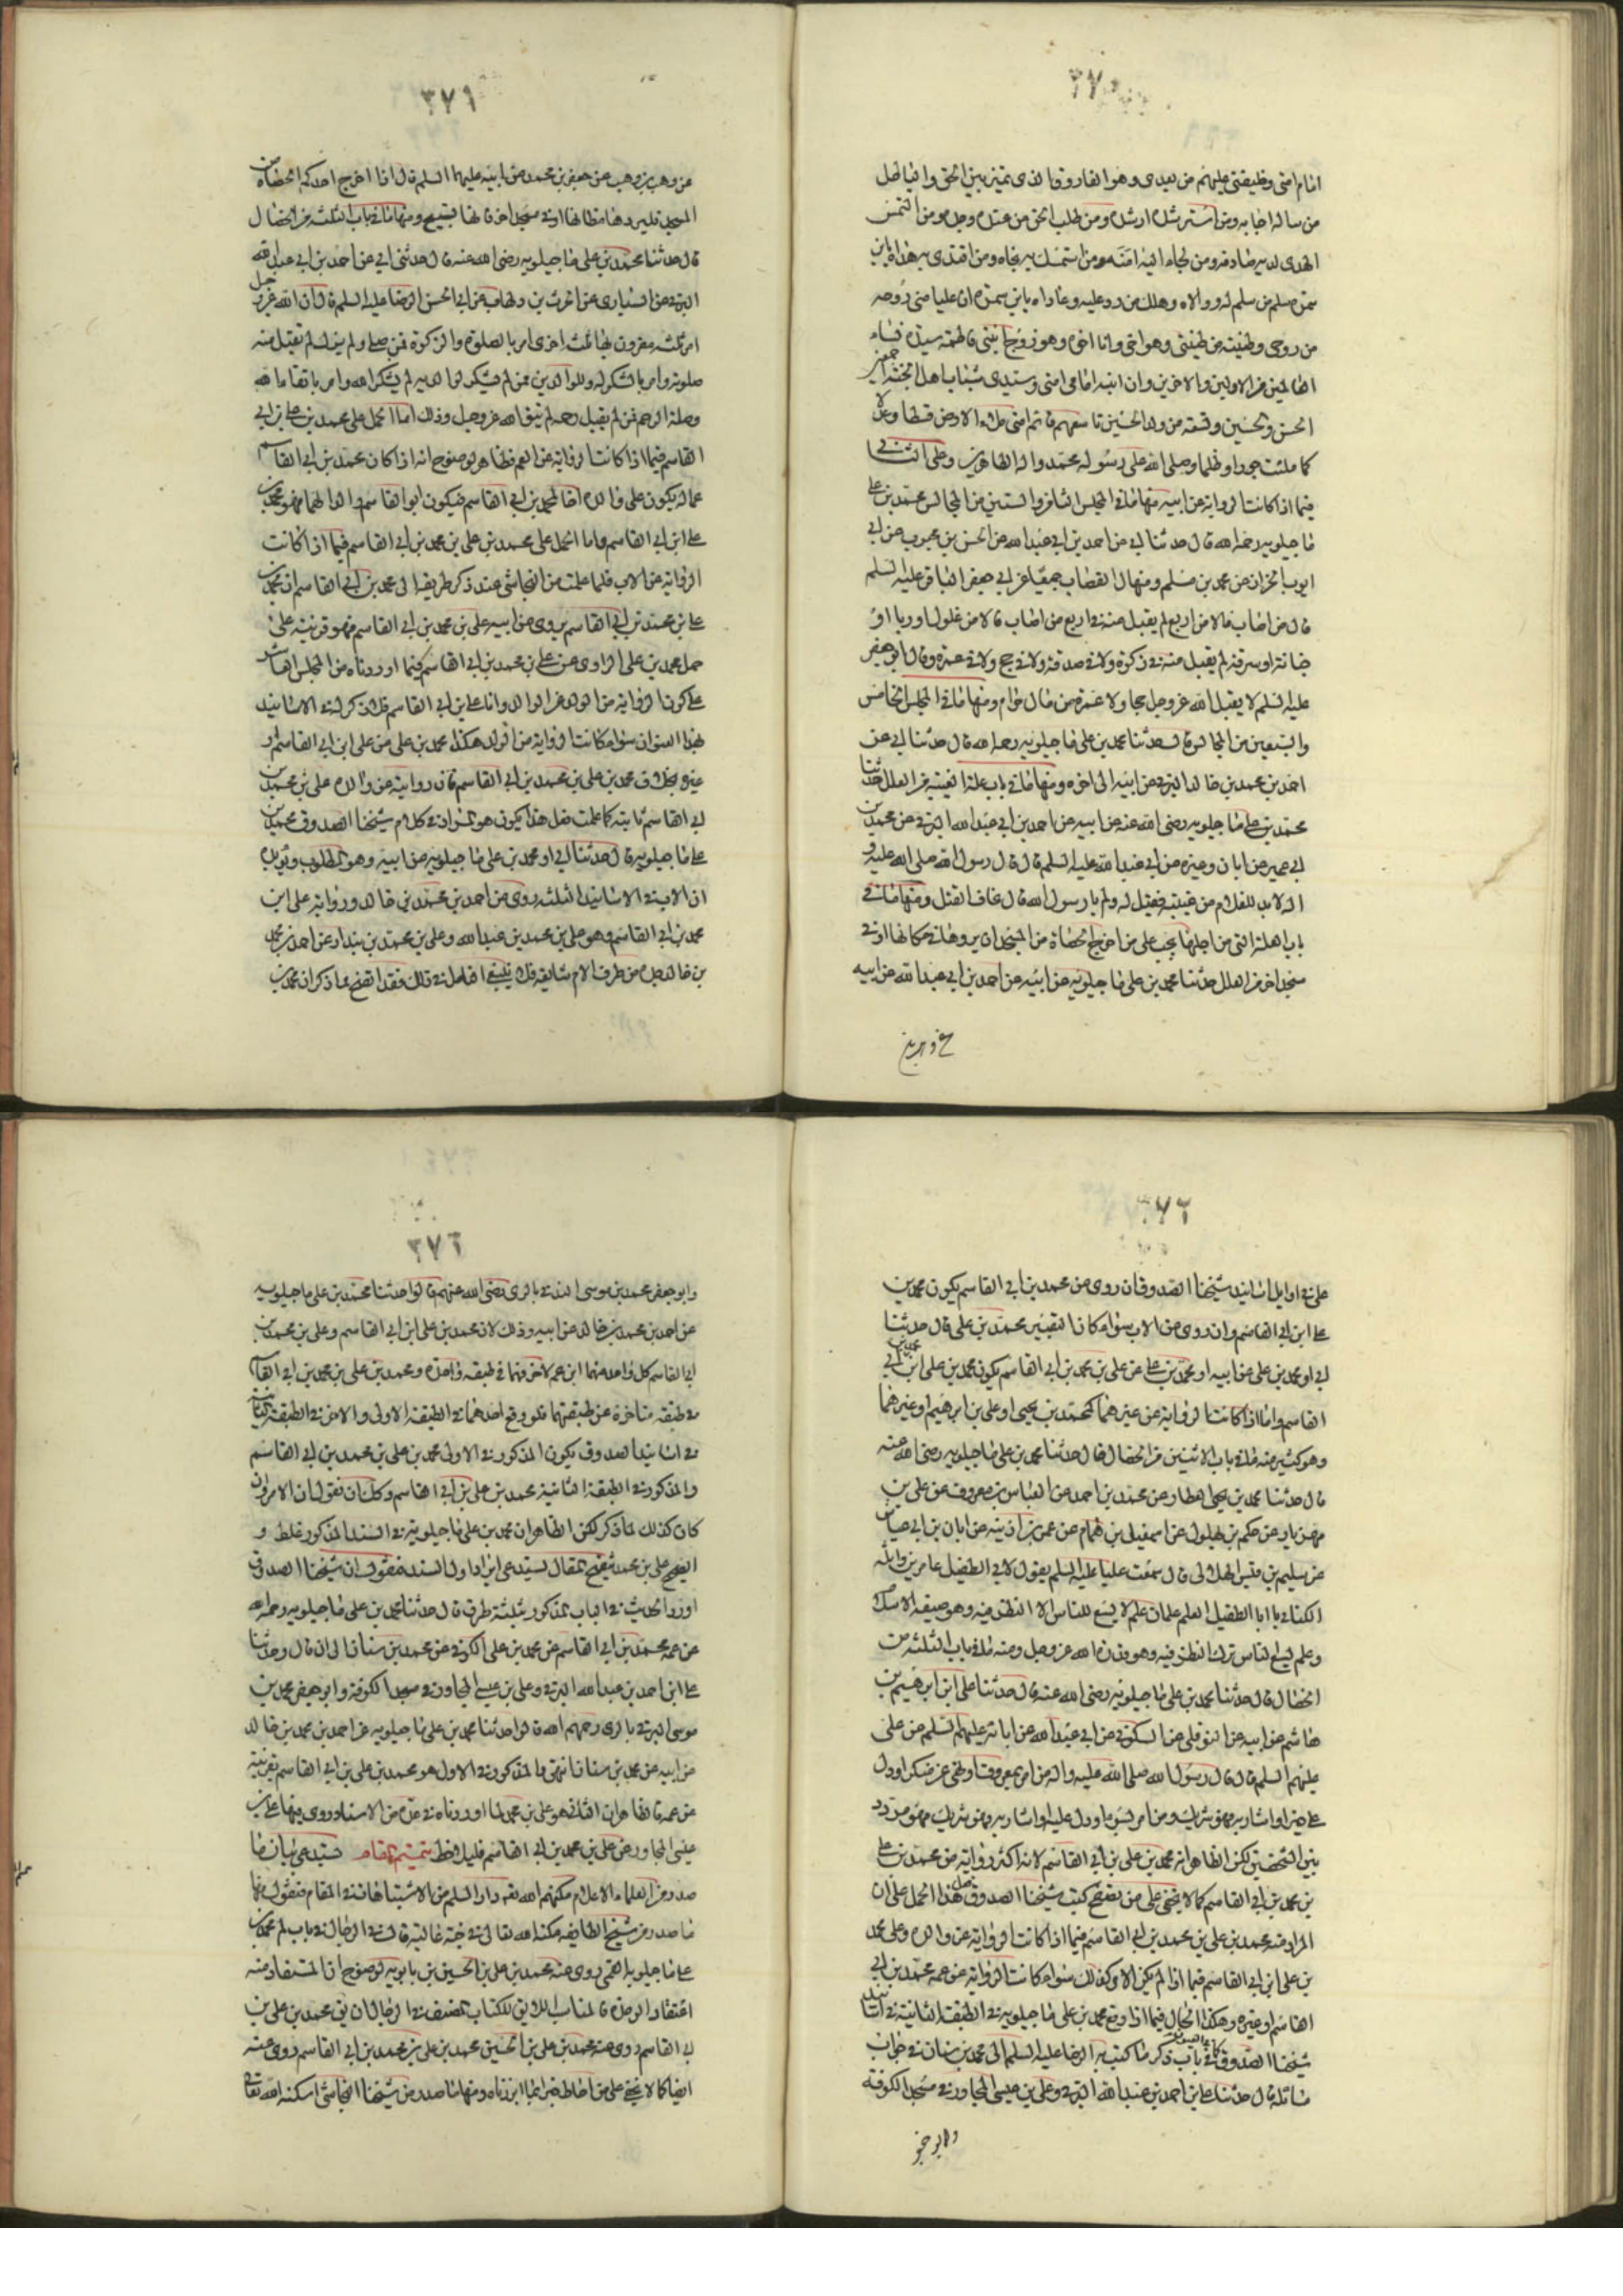 ٣٧٠
امام امتی وخلیفتی علیهم من بعدی وهو الفاروق الذی یمیز بین الحق والباطل
من ساله اجابه ومن استرشده ارشده ومن طلب الحق من عنده وجده ومن التمس
الهدی لدیه صادفه ومن لجاء الیه امنه ومن استمسك به نجاه ومن اقتدی به هداه یابن
سمرة سلم من سلم له ووالاه وهلك من رد علیه وعاداه یابن سمرة ان علیا منی روحه
من روحی وطینته من طینتی وهو اخی وانا اخوه وهو زوج ابنتی فاطمة سیدة نساء
العالمین من الاولین والاخرین وان ابنیه امامی امتی وسیدی شباب اهل الجنة
الحسن والحسین وتسعة من ولد الحسین تاسعهم قائم امتی یملاء الارض قسطا وعدلا
كما ملئت جورا وظلما وصلی الله علی رسوله محمد واله الطاهرین وعلی الثانی
فیما اذا كانت الروایة عن ابیه منها ما فی المجلس الثانی والستین من المجالس محمد بن علی
ماجیلویه رحمه الله قال حدثنا ابی عن احمد بن ابی عبد الله عن الحسن بن محبوب عن ابی
ایوب الخزاز عن محمد بن مسلم ومنهال القصاب جمیعا عن ابی جعفر الباقر علیه السلم
قال من اصاب مالا من اربع لم یقبل منه فی اربع من اصاب مالا من غلول او ربا او
خیانة او سرقة لم یقبل منه فی زكوة ولا فی صدقة ولا فی حج ولا فی عمرة وقال ابو جعفر
علیه السلم لا یقبل الله عز وجل حجا ولا عمرة من مال حرام ومنها ما فی المجلس الخامس
والسبعین من المجالس قال حدثنا محمد بن علی ماجیلویه رحمه الله قال حدثنا ابی عن
احمد بن محمد بن خالد البرقی عن ابیه الی اخره ومنها ما فی باب علة الغیبة من العلل حدثنا
محمد بن علی ماجیلویه رضی الله عنه عن ابیه عن احمد بن ابی عبد الله البرقی عن محمد بن
ابی عمیر عن ابان وغیره عن ابی عبد الله علیه السلم قال قال رسول الله صلی الله علیه و
اله لا بد للغلام من غیبة فقیل له ولم یا رسول الله قال یخاف القتل ومنها ما فی
باب العلة التی من اجلها یجب علی من اخرج الحصاة من المسجد ان یردها فی مكانها او فی
مسجد اخر من العلل حدثنا محمد بن علی ماجیلویه عن ابیه عن احمد بن ابی عبد الله عن ابیه
٣٧١
عن وهب بن وهب عن جعفر بن محمد عن ابیه علیهما السلم قال اذا اخرج احدكم الحصاة من
المسجد فلیردها مكانها او فی مسجد اخر فانها تسبح ومنها ما فی باب الثلثة من الخصال
قال حدثنا محمد بن علی ماجیلویه رضی الله عنه قال حدثنی ابی عن احمد بن ابی عبد الله
البرقی عن السیاری عن الحرث بن دلهاث عن ابی الحسن الرضا علیه السلم قال ان الله عز وجل
امر بثلثة مقرون بها ثلثة اخری امر بالصلوة والزكوة فمن صلی ولم یزك لم تقبل منه
صلوته وامر بالشكر له وللوالدین فمن لم یشكر لوالدیه لم یشكر الله وامر باتقاء الله
وصلة الرحم فمن لم یصل رحمه لم یتق الله عز وجل وذلك اما الحمل علی محمد بن علی بن ابی
القاسم فیما اذا كانت الروایة عن العم فظاهر لوضوح انه اذا كان محمد بن ابی القاسم
عما له یكون علی والده اخا لمحمد بن ابی القاسم فیكون ابو القاسم والدا لهما فهو محمد بن
علی ابن ابی القاسم واما الحمل علی محمد بن علی بن محمد بن ابی القاسم فیما اذا كانت
الروایة عن الاب فلما علمت من النجاشی عند ذكر طریقه الی محمد بن ابی القاسم ان محمد بن
علی بن محمد بن ابی القاسم یروی عن ابیه علی بن محمد بن ابی القاسم فهو قرینة علی
حمل محمد بن علی الراوی عن علی بن محمد بن ابی القاسم فیما اوردناه من المجلس العاشر
علی كون الروایة من الولد عن الوالد واما علی بن ابی القاسم فلم یذكر له فی الاسانید
بهذا العنوان سواء كانت الروایة من الولد هكذا محمد بن علی عن علی ابن ابی القاسم او
غیره بخلاف محمد بن علی بن محمد بن ابی القاسم فان روایته عن والده علی بن محمد بن
ابی القاسم ثابتة كما علمت فعلی هذا یكون هو المراد فی كلام شیخنا الصدوق محمد بن
علی ماجیلویه قال حدثنا ابی او محمد بن علی ماجیلویه عن ابیه وهو المطلوب ویؤیده
ان الاب فی الاسانید الثلثة روی عن احمد بن محمد بن خالد وروایة علی ابن
محمد بن ابی القاسم وهو علی بن محمد بن عبد الله وعلی بن محمد بن بندار عن احمد بن محمد
بن خالد من طرف الام شایعة فقد اتضح مما ذكر ان محمد بن
٣٧٢
علی فی اوایل اسانید شیخنا الصدوق ان روی عن محمد بن ابی القاسم یكون محمد بن
علی ابن ابی القاسم وان روی عن الاب سواء كان التعبیر محمد بن علی قال حدثنا
ابی او محمد بن علی عن ابیه او محمد بن علی عن علی بن محمد بن ابی القاسم یكون محمد بن علی ابن محمد بن ابی
القاسم واما اذا كانت الروایة عن غیرهما كمحمد بن یحیی او علی بن ابرهیم وغیرهما
وهو كثیر منه ما فی باب الاثنین من الخصال قال حدثنا محمد بن علی ماجیلویه رضی الله عنه
قال حدثنا محمد بن یحیی العطار عن محمد بن احمد عن العباس بن معروف عن علی بن
مهزیار عن حكم بن بهلول عن اسمعیل بن همام عن عمر بن اذینة عن ابان بن ابی عیاش
عن سلیم بن قیس الهلالی قال سمعت علیا علیه السلم یقول لابی الطفیل عامر بن واثلة
الكنانی یا ابا الطفیل العلم علمان علم لا یسع للناس الا النظر فیه وهو صبغة الاسلام
وعلم یسع للناس ترك النظر فیه وهو قدرة الله عز وجل ومنه ما فی باب الثلثة من
الخصال قال حدثنا محمد بن علی ماجیلویه رضی الله عنه قال حدثنا علی ابن ابرهیم بن
هاشم عن ابیه عن النوفلی عن السكونی عن ابی عبد الله عن ابائه علیهم السلم عن علی
علیهم السلم قال قال رسول الله صلی الله علیه واله من امر بمعروف او نهی عن منكر او دل
علی خیر او اشار به فهو شریك ومن امر بسوء او دل علیه او اشار به فهو شریك فهو مردد
بین الشخصین لكن الظاهر انه محمد بن علی بن ابی القاسم لانه اكثر روایة من محمد بن علی
بن محمد بن ابی القاسم كما لا یخفی علی من تصفح كتب شیخنا الصدوق هذا الحمل علی ان
المراد منه محمد بن علی بن محمد بن ابی القاسم فیما اذا كانت الروایة عن والده وعلی محمد
بن علی ابن ابی القاسم فیما اذا لم یكن الامر كذلك سواء كانت الروایة عن عمه محمد بن ابی
القاسم او غیره وهكذا الحال فیما اذا وقع محمد بن علی ماجیلویه فی الطبقة الثانیة فی اسانید
شیخنا الصدوق كما فی العیون فی باب ذكر ما كتب به الرضا علیه السلم الی محمد بن سنان فی جواب
مسائله قال حدثنا علی بن احمد بن عبد الله البرقی وعلی بن عیسی المجاور فی مسجد الكوفة
٣٧٣
وابو جعفر محمد بن موسی البرقی بالری رضی الله عنهم قالوا حدثنا محمد بن علی ماجیلویه
عن احمد بن محمد بن خالد عن ابیه وذلك لان محمد بن علی ابن ابی القاسم وعلی بن محمد بن
ابی القاسم كل واحد منهما ابن عم لاخر فهما فی طبقة واحدة ومحمد بن علی بن محمد بن ابی القاسم
فی طبقة متاخرة عن طبقتهما فلو وقع احدهما فی الطبقة الاولی والاخر فی الطبقة الثانیة
فی اسانید الصدوق یكون المذكور فی الاولی محمد بن علی بن محمد بن ابی القاسم
والمذكور فی الطبقة الثانیة محمد بن علی بن ابی القاسم ولكن نقول ان الامر وان
كان كذلك لما ذكر لكن الظاهر ان محمد بن علی ماجیلویه فی السند المذكور غلط و
الصحیح علی بن محمد توضیح المقال یستدعی ایراد اول السند فنقول ان شیخنا الصدوق
اورد الحدیث فی الباب المذكور بثلثة طرق قال حدثنا محمد بن علی ماجیلویه رحمه الله
عن عمه محمد بن ابی القاسم عن محمد بن علی الكوفی عن محمد بن سنان الی ان قال وحدثنا
علی ابن احمد بن عبد الله البرقی وعلی بن عیسی المجاور فی مسجد الكوفة وابو جعفر محمد بن
موسی البرقی بالری رحمهم الله قالوا حدثنا محمد بن علی ماجیلویه عن احمد بن محمد بن خالد
عن ابیه عن محمد بن سنان انتهی والمذكور فی الاول هو محمد بن علی بن ابی القاسم بقرینة
عن عمه فالظاهر ان الثانی هو علی بن محمد لما اوردناه فی عدة من الاسناد روی فیها علی بن
عیسی المجاور عن علی بن محمد بن ابی القاسم فلیلاحظ تتمیم المقام یستدعی بیان ما
صدر من العلماء الاعلام مكنهم الله تعالی دار السلم من الاشتباهات فی المقام فنقول منها
ما صدر من شیخ الطایفة مكنه الله تعالی فی جنة عالیة قال فی الرجال فی باب لم محمد بن
علی ماجیلویه القمی روی عنه محمد بن علی بن الحسین بن بابویه لوضوح ان المستفاد منه
اعتقاد الوحدة فالمناسب اللائق للكتاب المصنف فی الرجال ان یق محمد بن علی بن
ابی القاسم روی عنه محمد بن علی بن الحسین محمد بن علی بن محمد بن ابی القاسم روی عنه
ایضا كما لا یخفی علی من احاط خبرا بما ابرزناه ومنها ما صدر من شیخنا النجاشی اسكنه الله تعالی